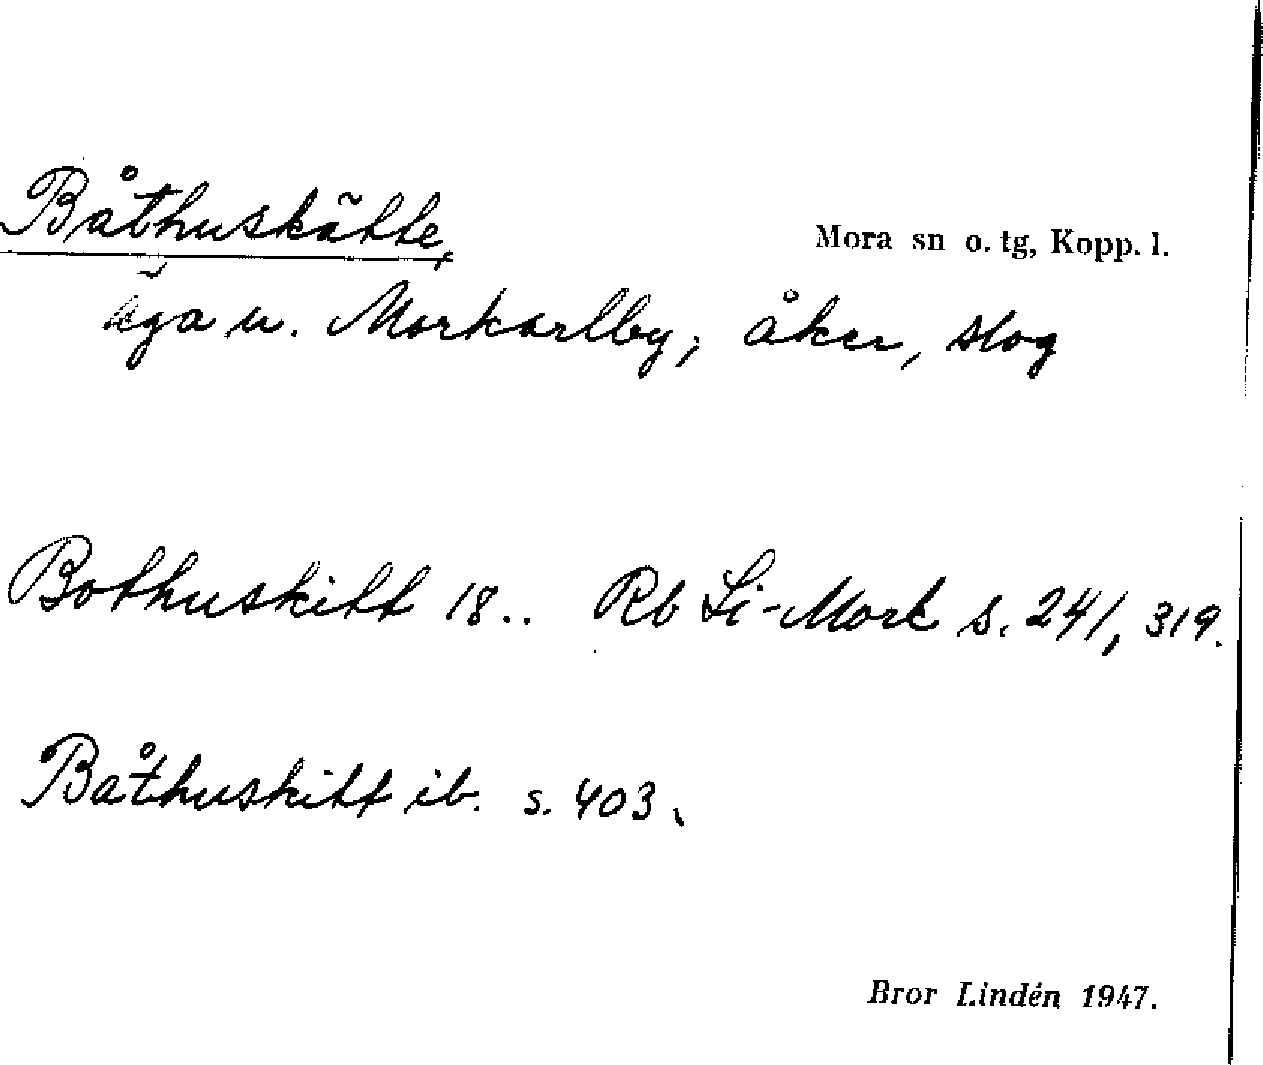 Båthuskätte,
Mora sn o. tg, Kopp. l.
äga u. Morkarlby, åker, slog
Bothuskitt 18.. Rb Li-Mork s. 241, 319.
Båthuskitt ib. s. 403.
Bror Lindén 1947.